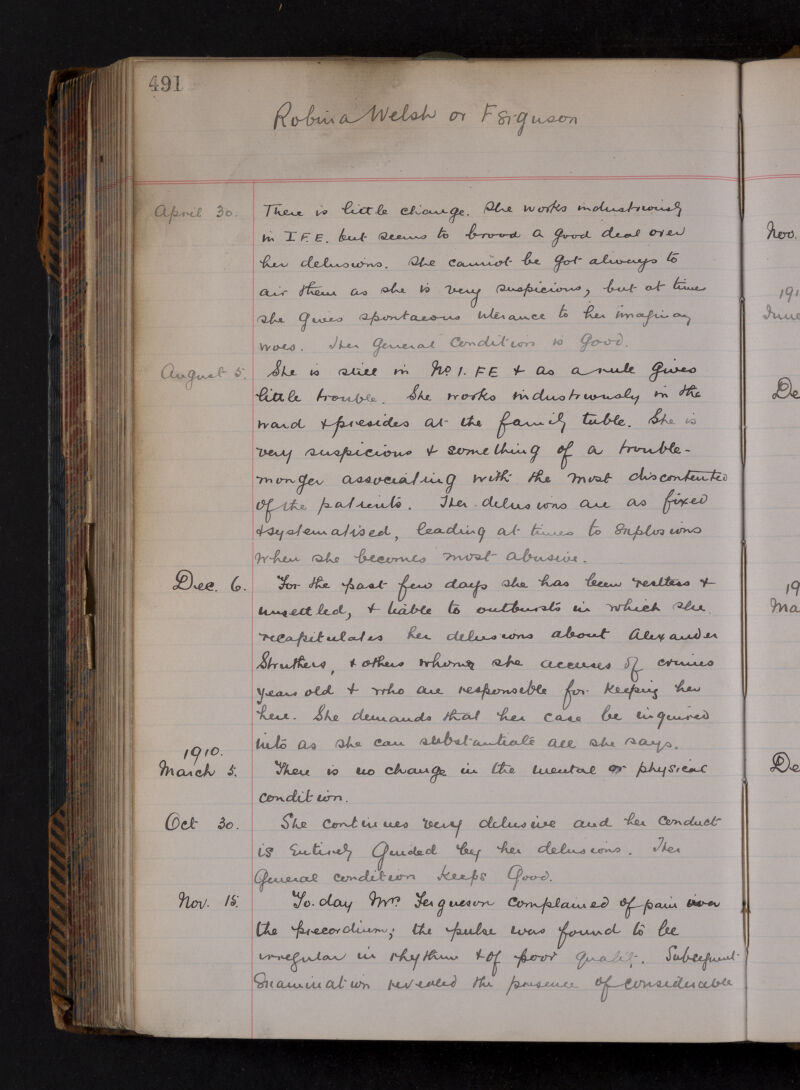 491
Robina Welsh or Ferguson
April 30. There is little change. She works industriously
in I F. E. but seems to brood a good deal over
her delusions. She cannot be got always to
air them as she is very suspicious, but at times
she gives spontaeous uterance to her imaginary
woes. Her general condition is good.
August 5. She is still in No 1. FE & as a rule gives
little trouble. She works industriously in the
ward & presides at the family table. She is
very suspicious & something of a trouble-
monger associating with the most discontented
of the patients. Her delusions are as fixed
& systematised, leading at times to Explosions
when she becomes most abusive.
Dec. 6. For the past few days she has been restless &
unsettled, & liable to outbursts in which she
recapitulates her delusions about Alexander
Struthers, & others whom she accuses of crimes
years old & who are responsible for keeping her
here. She demands that her case be inquired
into as she can substantiate all she says.
1910.
March 5. There is no change in the mental or physical
condition.
Oct 30. She continues very delusive and her conduct
is Entirely Guided by her delusions. Her
General condition keeps Good.
Nov. 15. To-day Mrs. Ferguson complained of pain over
the precordium; the pulse was found to be
irregular in rhythm & of poor quality. Subsequent
Examination revealed the presence of considerable
Nov.
191
June
De
19
Ma
De